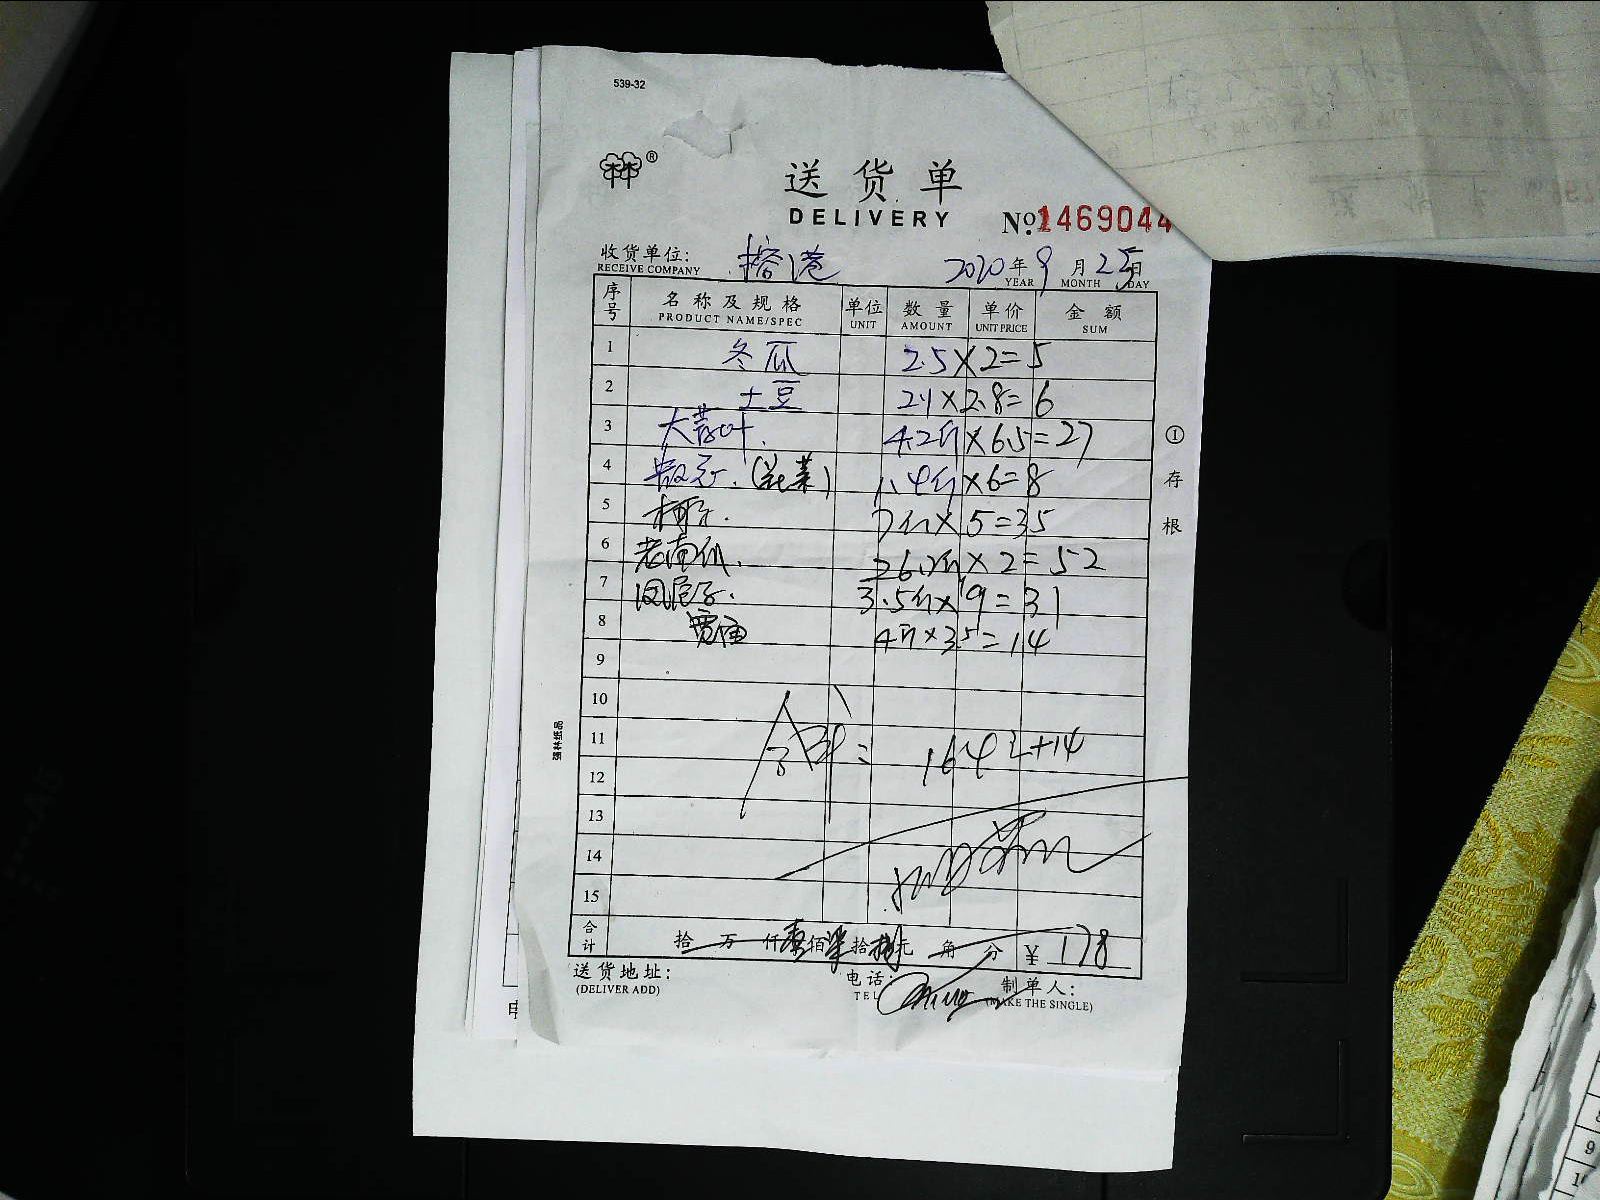 539-32
林®
送货单
DELIVERY
No.1469044
收货单位: 榕港 2020年9月25日
RECEIVE COMPANY YEAR MONTH DAY
序号 名称及规格 单位 数量 单价 金额
PRODUCT NAME/SPEC UNIT AMOUNT UNIT PRICE SUM
1 冬瓜 2.5×2=5
2 土豆 2.1×2.8=6
3 大蒜叶. 4.2斤×6.5=27
4 (花菜) 1.4斤×6=8
5 7斤×5=35
6 老南瓜. 26.2斤×2=52
7 3.5斤×9=31
8 4斤×3.5=14
9
10
11 合计: 164元+14
12
13
14
15
合计 拾万仟壹佰柒拾捌元角分 ¥178
送货地址: 电话: 制单人:
(DELIVER ADD) TEL (MAKE THE SINGLE)
①存根
强林纸品